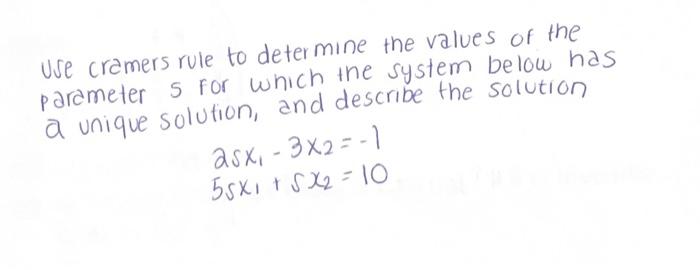 use cramers rule to determine the values of the
parameter s for which the system below has
a unique solution, and describe the solution
2sx₁ - 3x₂ = -1
5sx₁ + sx₂ = 10